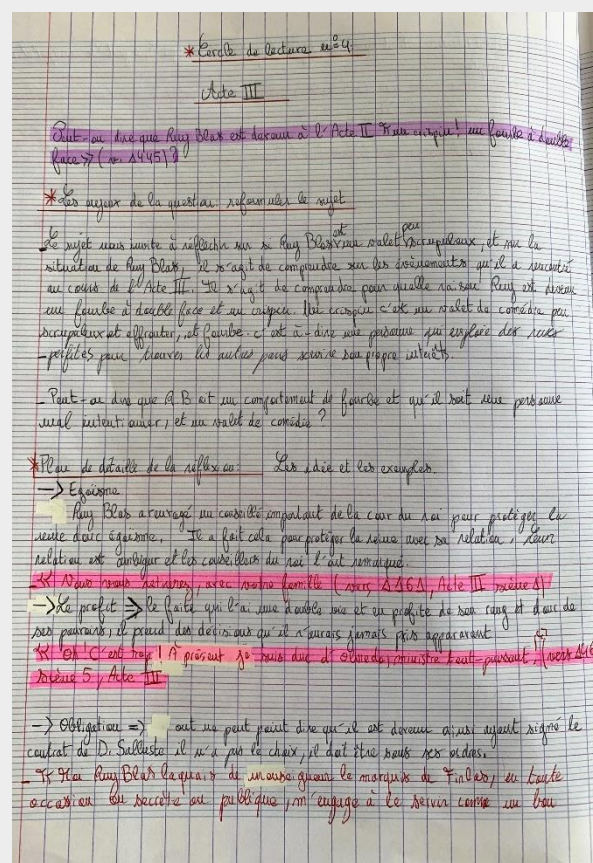 * Cercle de lecture n°4.
Acte III
Peut-on dire que Ruy Blas est devenu à l'Acte III « un crispin ! un fourbe à double
face » (v. 1445) ?
* Les enjeux de la question : reformuler le sujet
Le sujet nous invite à réfléchir sur si Ruy Blas est un valet peu scrupuleux, et sur la
situation de Ruy Blas, il s'agit de comprendre sur les évènements qu'il a rencontré
au cours de l'Acte III. Il s'agit de comprendre pour quelle raison Ruy est devenu
un fourbe à double face et un crispin. Un crispin c'est un valet de comédie peu
scrupuleux et effronter, et fourbe c'est à-dire une personne qui emploie des ruses
perfides pour trouver les autres pour servire son propre intérêts.
- Peut-on dire que R B ait un comportement de fourbe et qu'il soit une personne
mal intentionner, et un valet de comédie ?
* Plan de détaille de la réflexion : Les idée et les exemples.
-> Egoïsme
Ruy Blas a un conseillé important de la cour du roi pour protéger la
reine donc égoïsme. Il a fait cela pour protéger la reine avec sa relation, leur
relation est ambigur et les conseillers du roi l'ont remarqué.
« Vous vous retirerez, avec votre famille (vers 1161, Acte III scène 1)
-> Le profit => le faite qui l'ai une double vie et en profite de son rang et donc de
ses pouvoirs, il prend des décisions qu'il n'aurais jamais pris apparavant
« Oh ! C'est trop ! À présent je suis duc d'Olmedo, ministre tout-puissant, (vers
scène 5, Acte III
-> Obligation => out ne peut point dire qu'il est devenu ainsi ayant signé le
contrat de D. Salluste il n'a pas le choix, il doit être sous ses ordres.
- « Moi Ruy Blas laquais de monseigneur le marquis de Finlas, en toute
occasion ou secrète ou publique, m'engage à le servir comme un bon